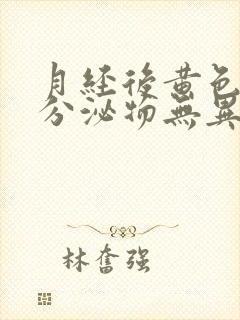 月經後黃色
分泌物無異
林奮強